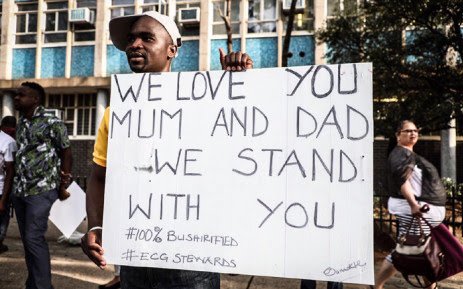 WE LOVE YOU
MUM AND DAD
WE STAND
WITH YOU
#100% BUSHIRIFIED
#ECG STEWARDS